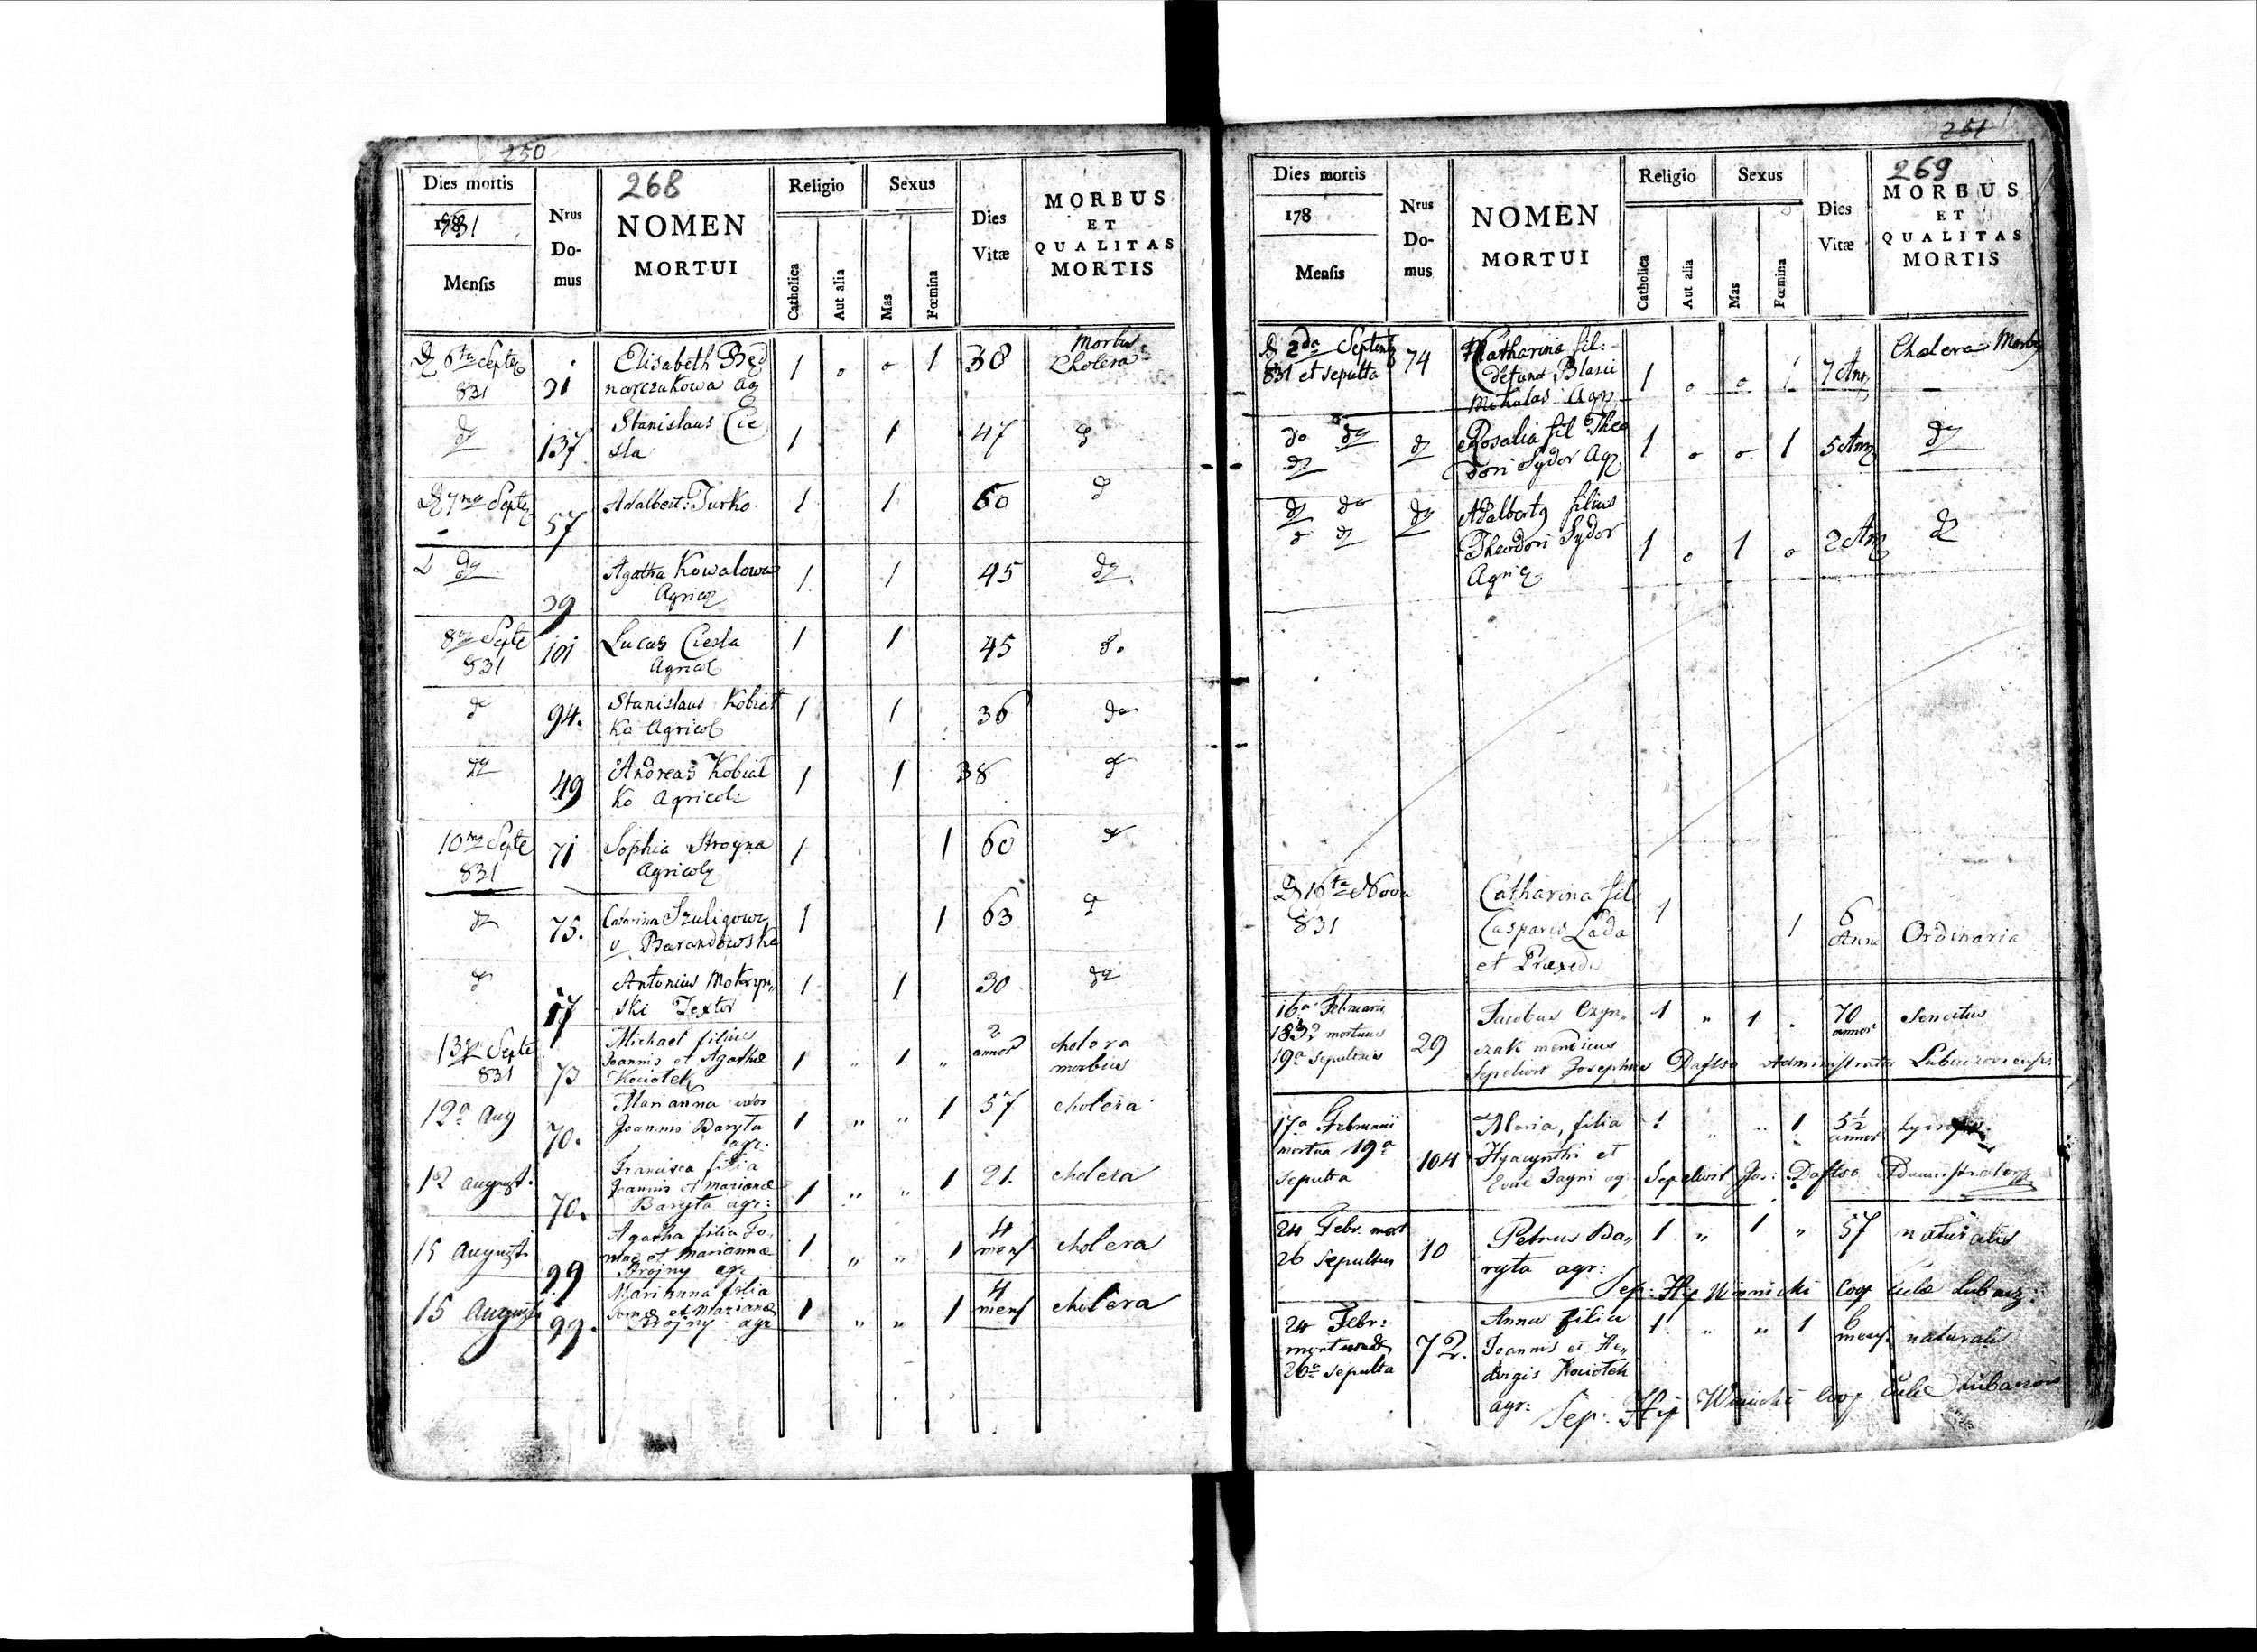 250
268
Dies mortis
1831
Mensis
Nrus Do-mus
NOMEN MORTUI
Religio
Catholica
Aut alia
Sexus
Mas
Fœmina
Dies Vitæ
MORBUS ET QUALITAS MORTIS
6ta Septe 831 31 Elisabeth Będ 1 o o 1 38 Morbus Cholera
narczukowa ag
137 Stanislaus Cie 1 1 47
sla
7ma Septe 57 Adalbert: Turko 1 1 60
39 Agatha Kowalowa 1 1 45
Agricol
8 Septe 831 101 Lucas Ciesla 1 1 45
Agricol
94. Stanislaus Kobiał 1 1 36 do
ko Agricol
49 Andreas Kobiał 1 1 38
ko Agricol
10ma Septe 831 71 Sophia Stroyna 1 1 60
Agricol
75. Catarina Szuligowa 1 1 63
v Barandowska
17 Antonius Mokrzyn 1 1 30
ski Textor
13 Septe 831 73 Michael filius 1 „ 1 „ 2 annor cholera morbus
Joannis et Agathæ
Kociołek
12a Aug 70. Marianna uxor 1 „ „ 1 57 cholera
Joannis Baryta
agr.
12 august. 70. Francisca filia 1 „ „ 1 21. cholera
Joannis et Marianæ
Baryta agr:
15 August. 99 Agatha filia To. 1 „ „ 1 4 mens cholera
mæ et Mariannæ
Strojny agr
15 August 99. Marianna filia 1 „ „ 1 4 mens cholera
Tomæ et Marianæ
Strojny agr
251
269
Dies mortis
178
Mensis
Nrus Do-mus
NOMEN MORTUI
Religio
Catholica
Aut alia
Sexus
Mas
Fœmina
Dies Vitæ
MORBUS ET QUALITAS MORTIS
2da Septemb 74 Katharina fil: 1 o o 1 7 Ann Cholera Morbus
831 et sepulta defunct Blasii
Mikulas Agr
do Rosalia fil Theo 1 o o 1 5 Ann
dori Sydor Agr
do Adalbertus filius 1 o 1 o 2 Ann
Theodori Sydor
Agric
D 16ta Nov Catharina fil 1 1 6 Anno Ordinaria
831 Casparis Lada
et Praxedis
16a Februarii 29 Jacobus Czyn„ 1 „ 1 . 70 annor Senectus
1832 mortuus czak mendicus
19a sepultus Sepelivit Josephus Administrator
17a Februarii 104 Maria, filia 1 „ „ 1 5½ annor
mortua 19a Hyacynthi et
sepulta Evae Jagni agr Sepelivit Jos: Administrator
24 Febr. mort 10 Petrus Ba„ 1 „ 1 „ 57 naturalis
26 sepultus ryta agr:
Sep: Hip Winnicki Coop
24 Febr: 72. Anna filia 1 „ „ 1 6 mens. naturalis
mortua Joannis et He„
26a sepulta dvigis Kociołek
agr: Sep: Hip Winnicki Coop